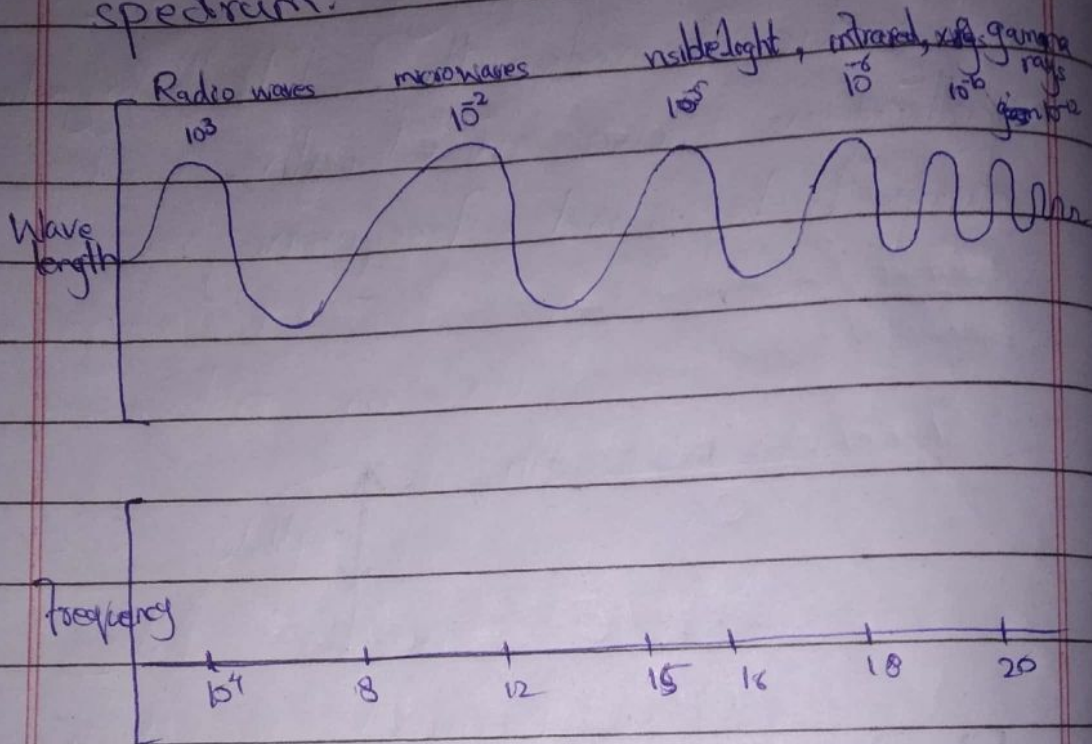 spectrum.
Radio waves microwaves visible light, infrared, x-ray, gamma rays
10³ 10⁻² 10⁻⁵ 10⁻⁶ 10⁻¹⁰ 10⁻¹²
Wave
length
frequency
10⁴ 8 12 15 16 18 20